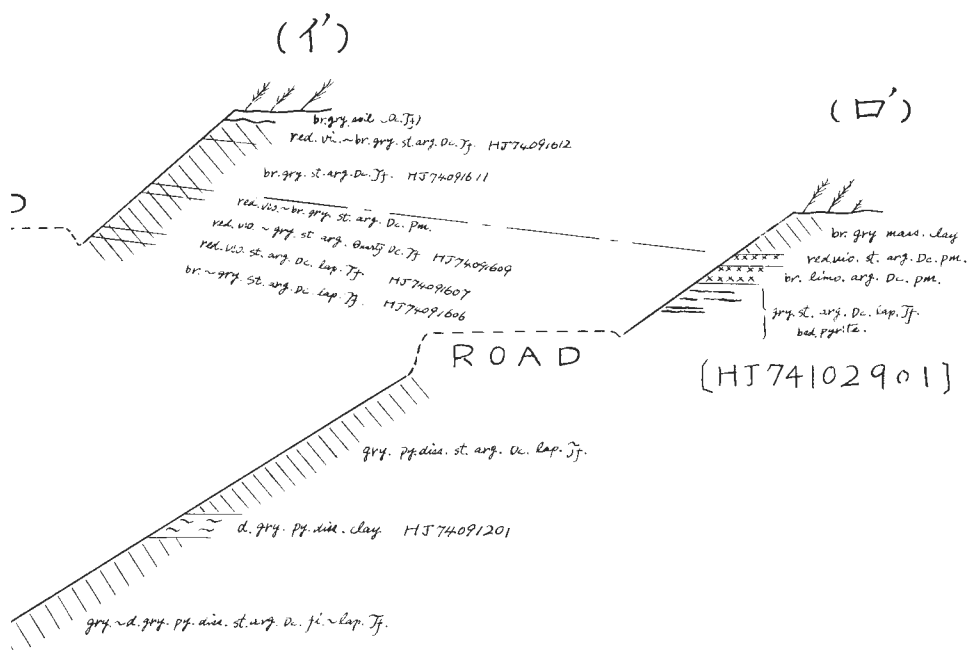 (イ')
br. gry. soil (Dc. Tf)
red. vio. ~ br. gry. st. arg. Dc. Tf. HJ74091612
br. gry. st. arg. Dc. Tf. HJ74091611
red. vio. ~ br. gry. st. arg. Dc. pm.
red. vio. ~ gry. st. arg. Quartz Dc. Tf HJ74091609
red. vio. st. arg. Dc. lap. Tf HJ74091607
br. ~ gry. st. arg. Dc lap. Tf HJ74091606
(ロ')
br. gry mass. clay
red. vio. st. arg. Dc. pm.
br. limo. arg. Dc. pm.
gry. st. arg. Dc. lap. Tf.
bed. pyrite.
[HJ74102901]
ROAD
gry. py. diss. st. arg. Dc. lap. Tf.
d. gry. py. diss. clay HJ74091201
gry. ~ d. gry. py. diss. st. arg. Dc. fi. ~ lap. Tf.